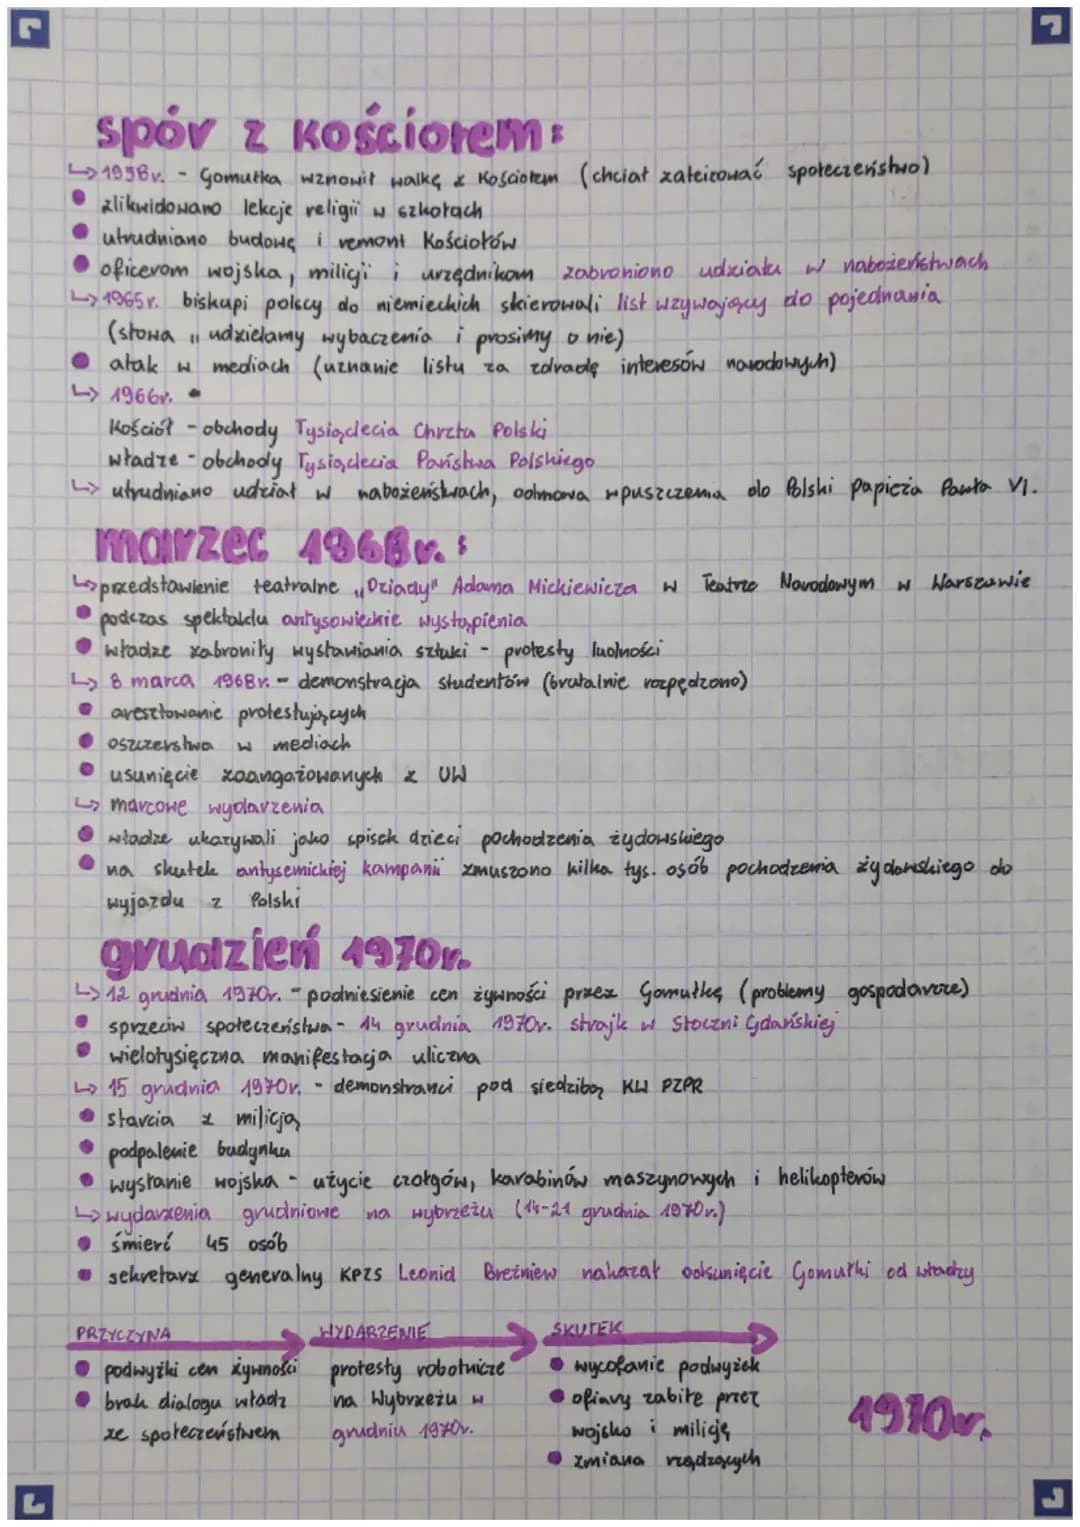 spór z Kościołem:
↳ 1958r. - Gomułka wznowił walkę z Kościołem (chciał zateizować społeczeństwo)
• zlikwidowano lekcje religii w szkołach
• utrudniano budowę i remont Kościołów
• oficerom wojska, milicji i urzędnikom zabroniono udziału w nabożeństwach
↳ 1965r. biskupi polscy do niemieckich skierowali list wzywający do pojednania
(słowa „udzielamy wybaczenia i prosimy o nie)
• atak w mediach (uznanie listu za zdradę interesów narodowych)
↳ 1966r.
Kościół - obchody Tysiąclecia Chrztu Polski
władze - obchody Tysiąclecia Państwa Polskiego
↳ utrudniano udział w nabożeństwach, odmowa wpuszczenia do Polski papieża Pawła VI.
marzec 1968r.:
↳ przedstawienie teatralne „Dziady" Adama Mickiewicza w Teatrze Narodowym w Warszawie
• podczas spektaklu antysowieckie wystąpienia
• władze zabroniły wystawiania sztuki - protesty ludności
↳ 8 marca 1968r. - demonstracja studentów (brutalnie rozpędzono)
• aresztowanie protestujących
• oszczerstwa w mediach
• usunięcie zaangażowanych z UW
↳ marcowe wydarzenia
• władze ukazywali jako spisek dzieci pochodzenia żydowskiego
• na skutek antysemickiej kampanii zmuszono kilka tys. osób pochodzenia żydowskiego do
wyjazdu z Polski
grudzień 1970r.
↳ 12 grudnia 1970r. - podniesienie cen żywności przez Gomułkę (problemy gospodarcze)
• sprzeciw społeczeństwa - 14 grudnia 1970r. strajk w Stoczni Gdańskiej
• wielotysięczna manifestacja uliczna
↳ 15 grudnia 1970r. - demonstranci pod siedzibą KW PZPR
• starcia z milicją
• podpalenie budynku
• wysłanie wojska - użycie czołgów, karabinów maszynowych i helikopterów
↳ wydarzenia grudniowe na wybrzeżu (14-21 grudnia 1970r.)
• śmierć 45 osób
• sekretarz generalny KPZS Leonid Breżniew nakazał odsunięcie Gomułki od władzy
PRZYCZYNA
• podwyżki cen żywności
• brak dialogu władz
ze społeczeństwem
WYDARZENIE
protesty robotnicze
na Wybrzeżu w
grudniu 1970r.
SKUTEK
• wycofanie podwyżek
• ofiary zabite przez
wojsko i milicję
• zmiana rządzących
1970r.